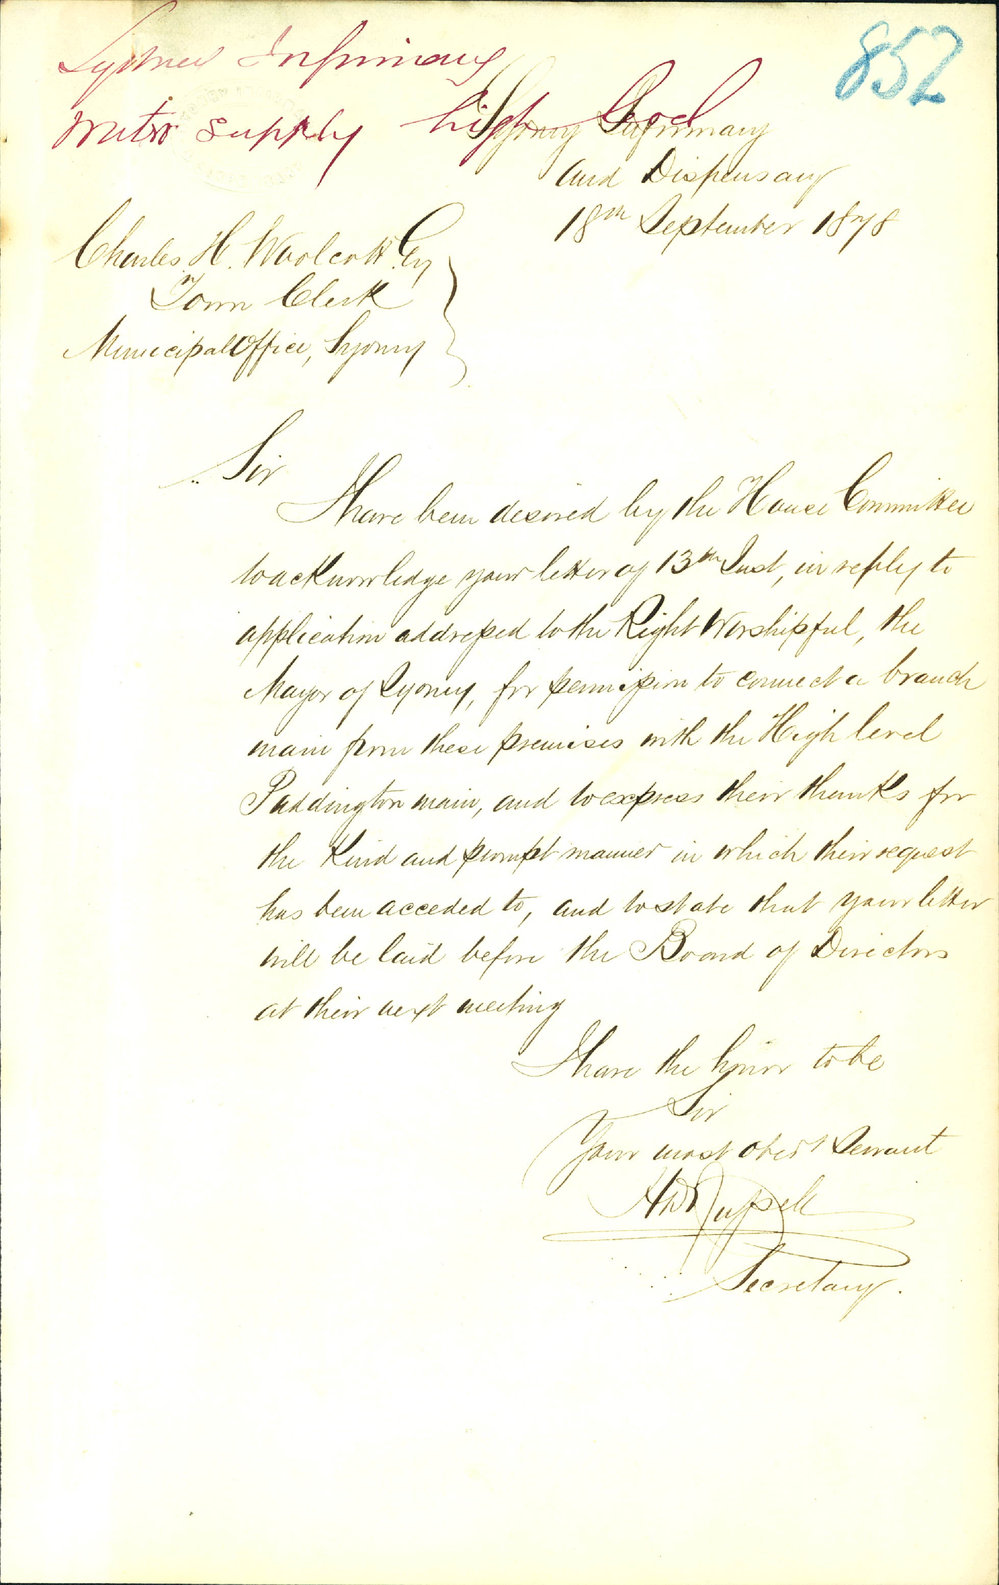 Sydney Infirmary
852
Water Supply high level
Sydney Infirmary
and Dispensary
18th September 1878
Charles H. Woolcott Esq
Town Clerk
Municipal Office, Sydney
Sir
I have been desired by the House Committee
to acknowledge your letter of 13th Inst, in reply to
application addressed to the Right Worshipful, the
Mayor of Sydney, for permission to connect a branch
main from these premises with the High level
Paddington main, and to express their thanks for
the Kind and prompt manner in which their request
has been acceded to, and to state that your letter
will be laid before the Board of Directors
at their next meeting
I have the honor to be
Sir
Your most obedt Servant
Russell
Secretary.